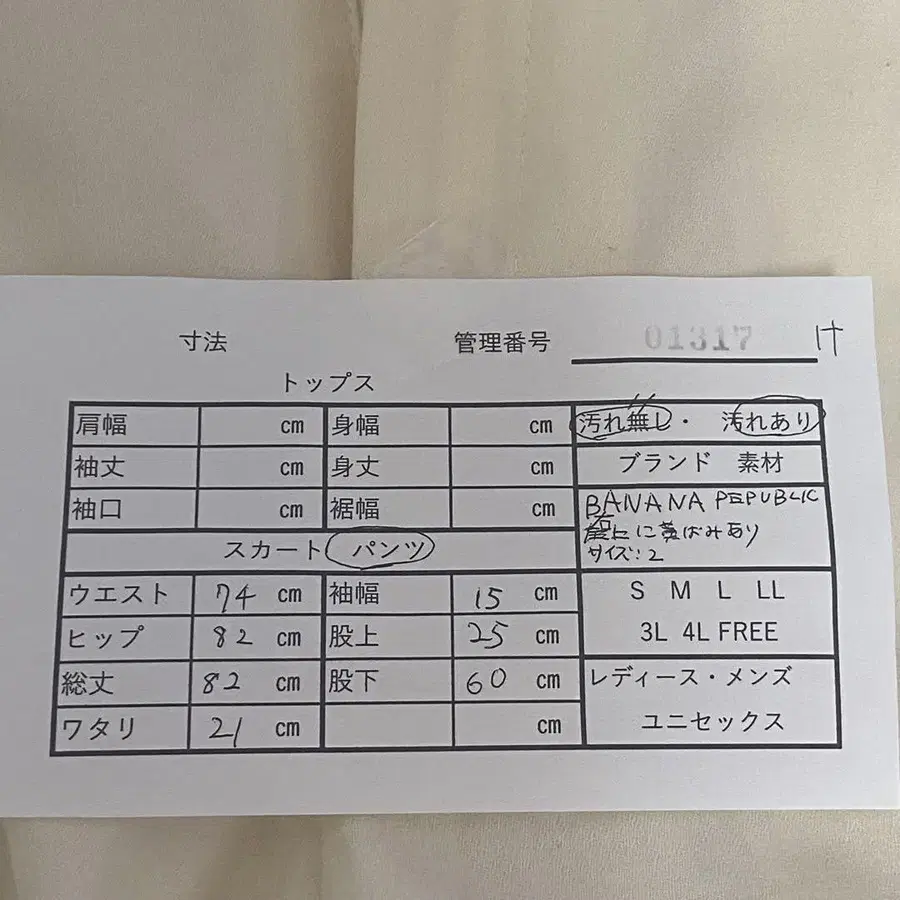 寸法 管理番号 01317 け
トップス
肩幅 cm 身幅 cm 汚れ無し・ 汚れあり
袖丈 cm 身丈 cm ブランド 素材
袖口 cm 裾幅 cm BANANA PEPUBLIC
に黄ばみあり
サイズ:2
スカート パンツ
ウエスト 74 cm 袖幅 15 cm S M L LL
ヒップ 82 cm 股上 25 cm 3L 4L FREE
総丈 82 cm 股下 60 cm レディース・メンズ
ワタリ 21 cm cm ユニセックス